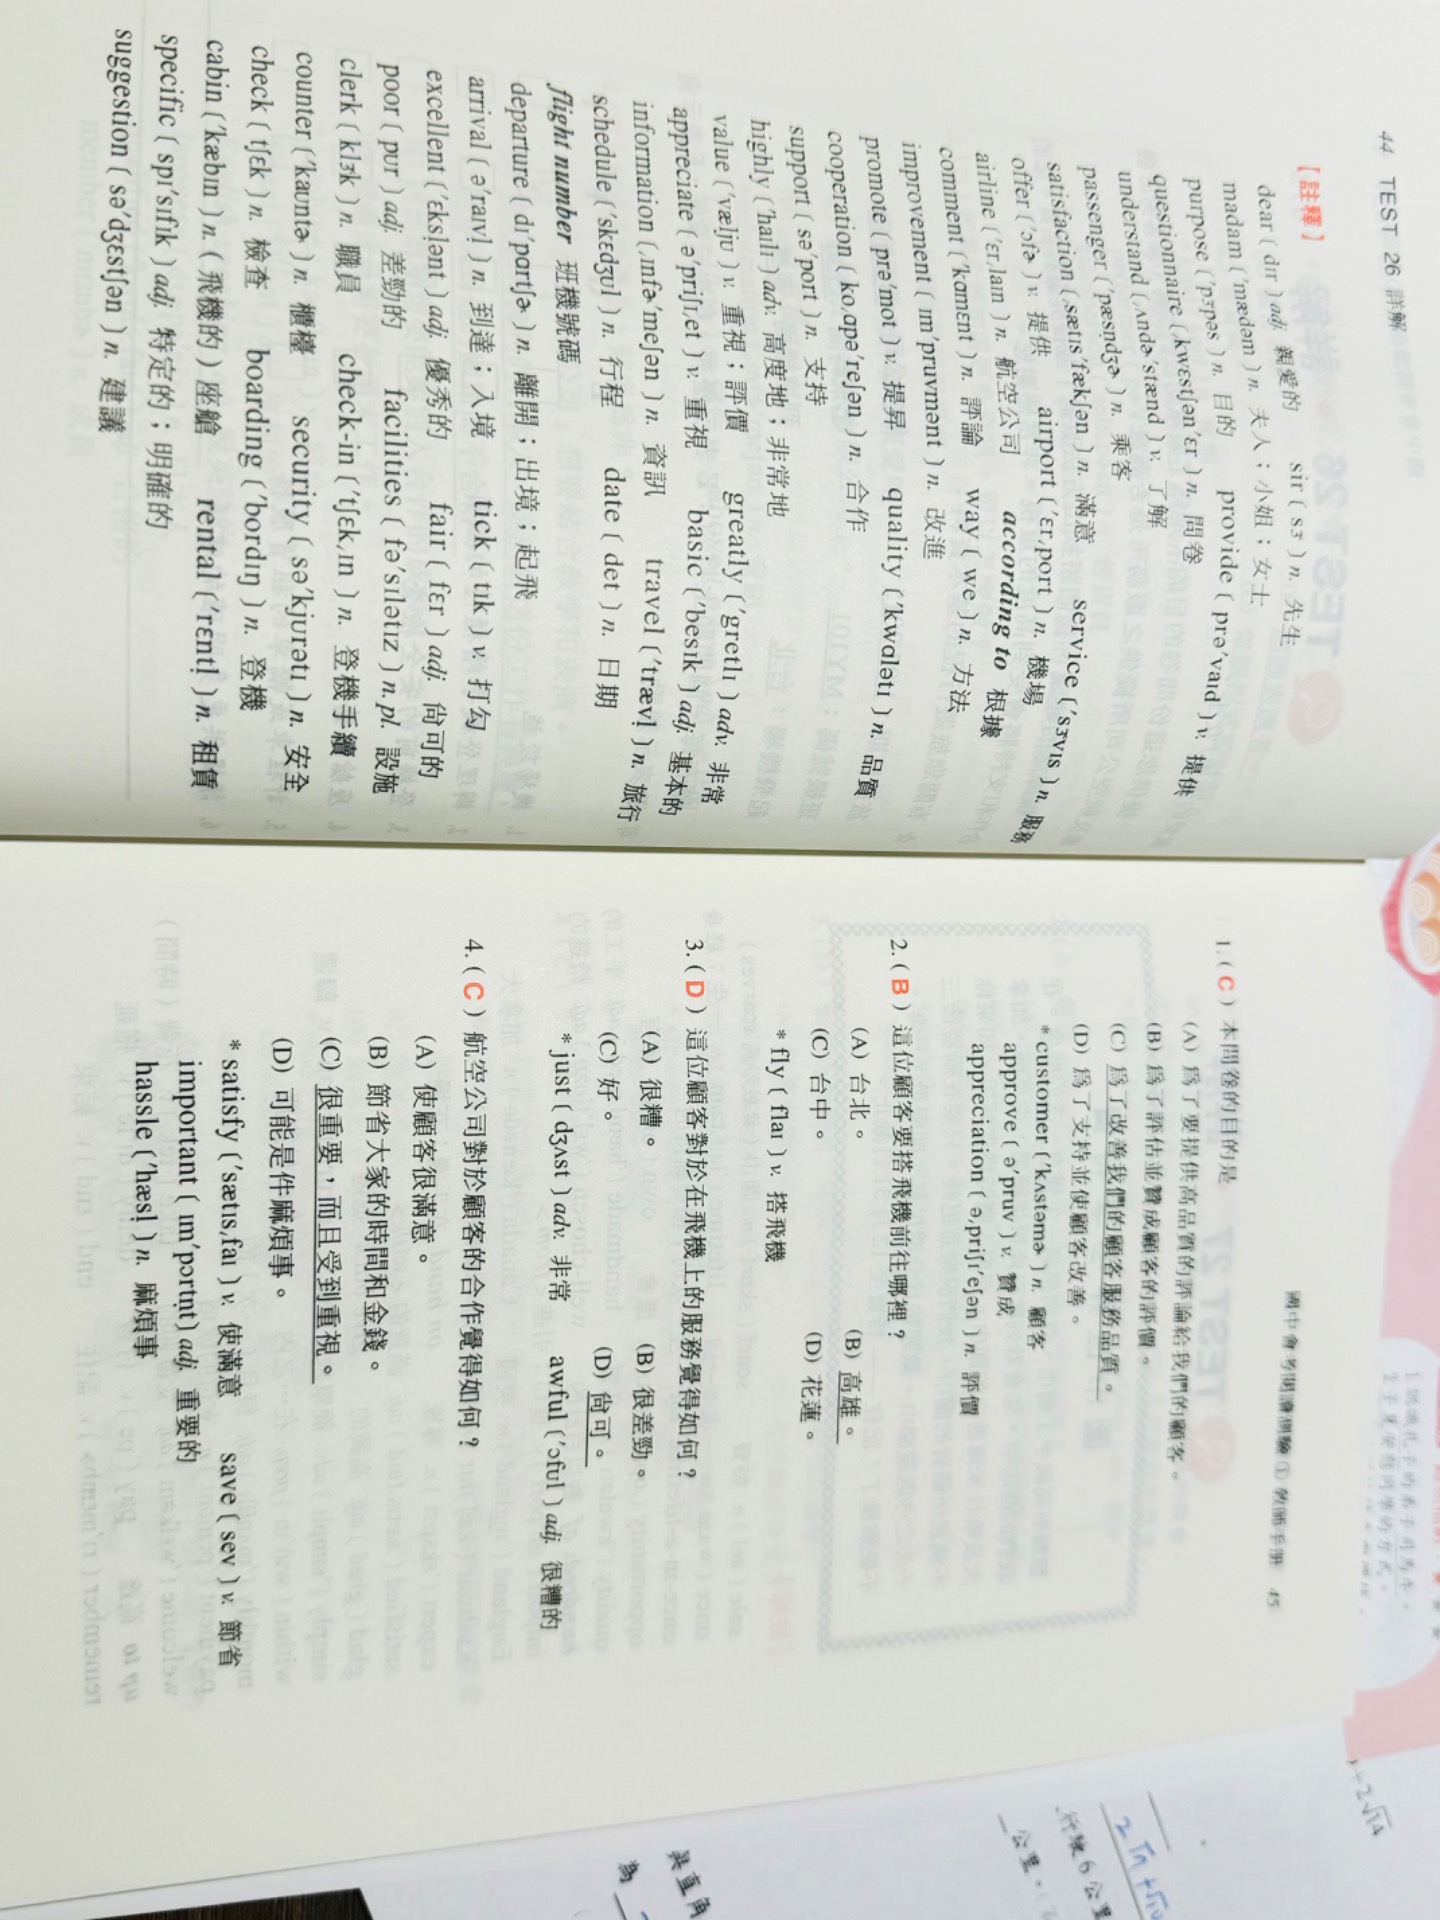 44 TEST 26 詳解
【註釋】
dear ( dɪr ) adj. 親愛的 sir ( sɝ ) n. 先生
madam ( ′mædəm ) n. 夫人；小姐；女士
purpose ( ′pɝpəs ) n. 目的 provide ( prə′vaɪd ) v. 提供
questionnaire ( ˌkwɛstʃən′ɛr ) n. 問卷
understand ( ˌʌndɚ′stænd ) v. 了解
passenger ( ′pæsn̩dʒɚ ) n. 乘客
satisfaction ( ˌsætɪs′fækʃən ) n. 滿意 service ( ′sɝvɪs ) n. 服務
offer ( ′ɔfɚ ) v. 提供 airport ( ′ɛrˌport ) n. 機場
airline ( ′ɛrˌlaɪn ) n. 航空公司 according to 根據
comment ( ′kɑmɛnt ) n. 評論 way ( we ) n. 方法
improvement ( ɪm′pruvmənt ) n. 改進
promote ( prə′mot ) v. 提昇 quality ( ′kwɑlətɪ ) n. 品質
cooperation ( koˌɑpə′reʃən ) n. 合作
support ( sə′port ) n. 支持
highly ( ′haɪlɪ ) adv. 高度地；非常地
value ( ′vælju ) v. 重視；評價 greatly ( ′gretlɪ ) adv. 非常
appreciate ( ə′priʃɪˌet ) v. 重視 basic ( ′besɪk ) adj. 基本的
information ( ˌɪnfɚ′meʃən ) n. 資訊 travel ( ′trævl̩ ) n. 旅行
schedule ( ′skɛdʒʊl ) n. 行程 date ( det ) n. 日期
flight number 班機號碼
departure ( dɪ′pɑrtʃɚ ) n. 離開；出境；起飛
arrival ( ə′raɪvl̩ ) n. 到達；入境 tick ( tɪk ) v. 打勾
excellent ( ′ɛksl̩ənt ) adj. 優秀的 fair ( fɛr ) adj. 尚可的
poor ( pʊr ) adj. 差勁的 facilities ( fə′sɪlətɪz ) n. pl. 設施
clerk ( klɝk ) n. 職員 check-in ( ′tʃɛkˌɪn ) n. 登機手續
counter ( ′kaʊntɚ ) n. 櫃檯 security ( sə′kjʊrətɪ ) n. 安全
check ( tʃɛk ) n. 檢查 boarding ( ′bordɪŋ ) n. 登機
cabin ( ′kæbɪn ) n. ( 飛機的 ) 座艙 rental ( ′rɛntl̩ ) n. 租賃
specific ( spɪ′sɪfɪk ) adj. 特定的；明確的
suggestion ( sə′dʒɛstʃən ) n. 建議
國中會考閱讀測驗①教師手冊 45
1. ( C ) 本問卷的目的是
(A) 為了要提供高品質的評論給我們的顧客。
(B) 為了評估並贊成顧客的評價。
(C) 為了改善我們的顧客服務品質。
(D) 為了支持並使顧客改善。
* customer ( ′kʌstəmɚ ) n. 顧客
approve ( ə′pruv ) v. 贊成
appreciation ( əˌpriʃɪ′eʃən ) n. 評價
2. ( B ) 這位顧客要搭飛機前往哪裡？
(A) 台北。 (B) 高雄。
(C) 台中。 (D) 花蓮。
* fly ( flaɪ ) v. 搭飛機
3. ( D ) 這位顧客對於在飛機上的服務覺得如何？
(A) 很糟。 (B) 很差勁。
(C) 好。 (D) 尚可。
* just ( dʒʌst ) adv. 非常 awful ( ′ɔfʊl ) adj. 很糟的
4. ( C ) 航空公司對於顧客的合作覺得如何？
(A) 使顧客很滿意。
(B) 節省大家的時間和金錢。
(C) 很重要，而且受到重視。
(D) 可能是件麻煩事。
* satisfy ( ′sætɪsˌfaɪ ) v. 使滿意 save ( sev ) v. 節省
important ( ɪm′pɔrtn̩t ) adj. 重要的
hassle ( ′hæsl̩ ) n. 麻煩事
+2√14
2√n+√10
行駛6公里
公里。
與直角
為